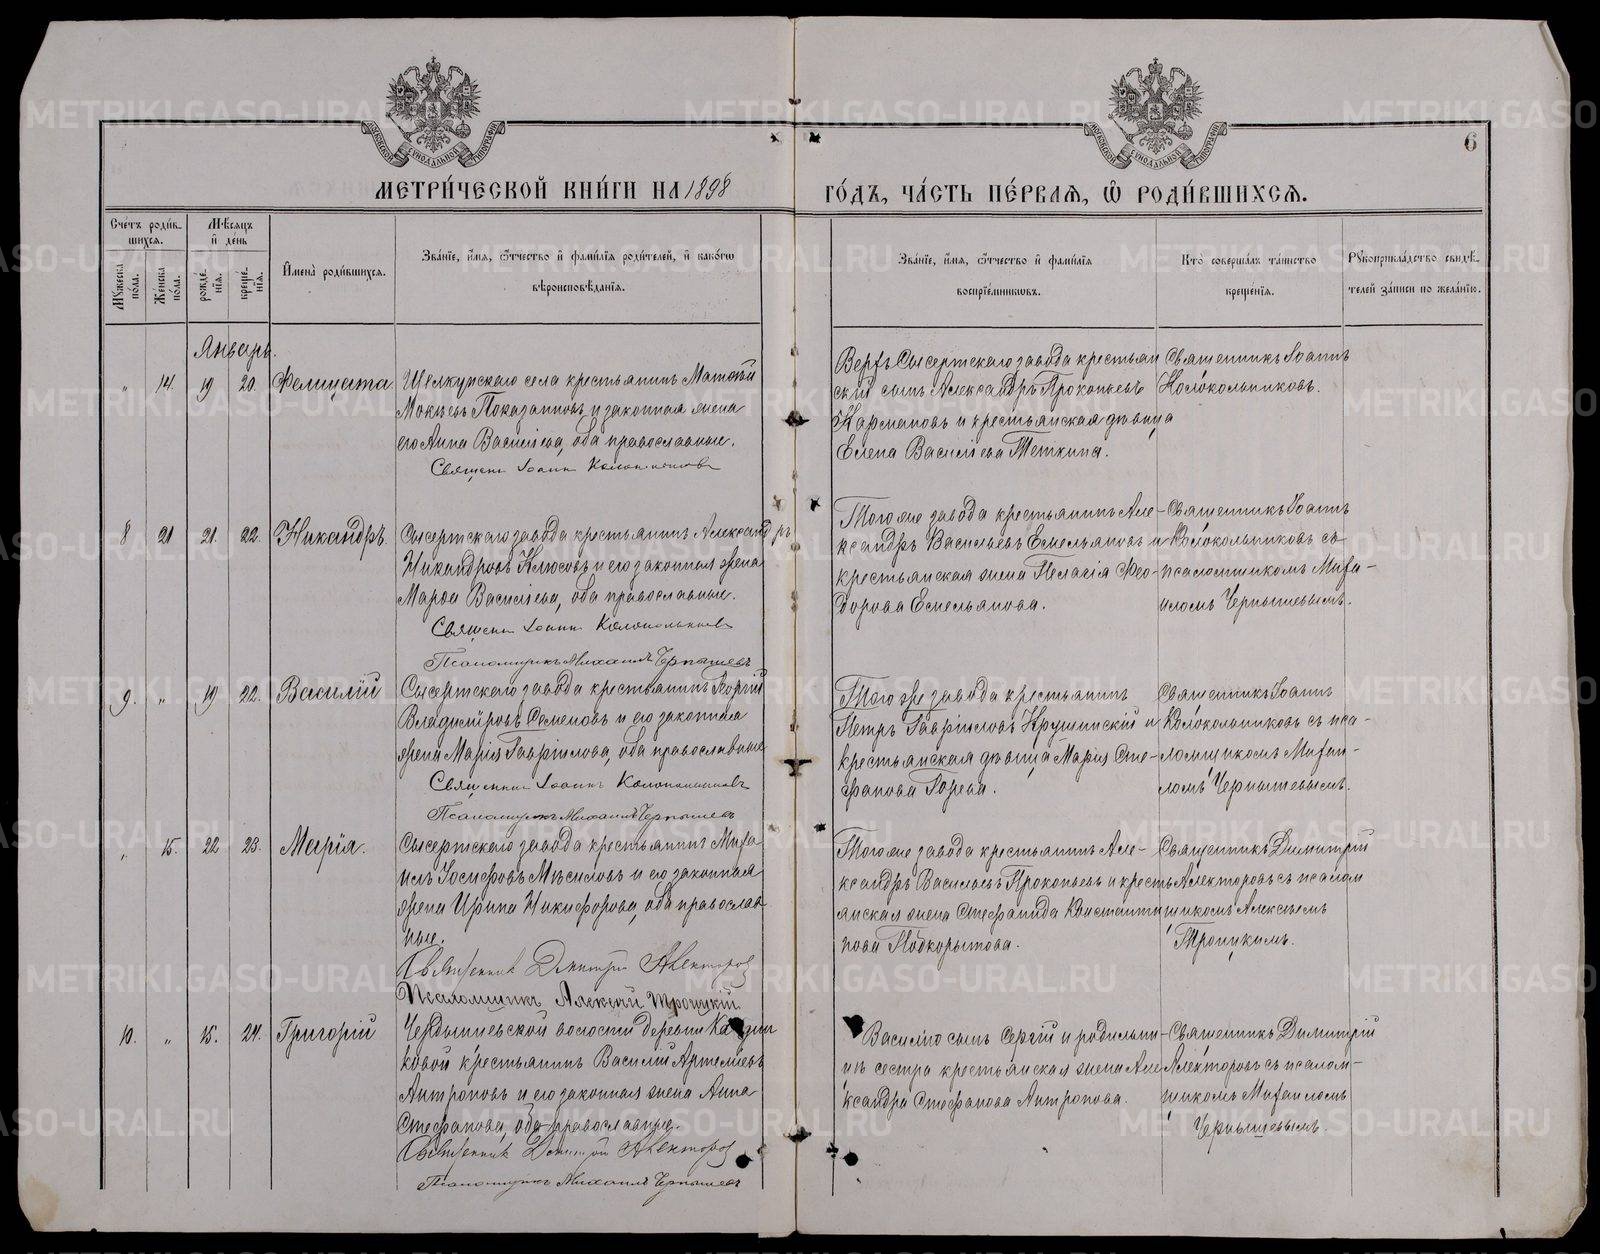 МЕТРИ́ЧЕСКОЙ КНИ́ГИ НА 1898
ГО́ДЪ, ЧА́СТЬ ПЕ́РВАЯ, Ѽ РОДИ́ВШИХСЯ.
6
Сче́тъ роди́в-
шихся.
Мѣ́сяцъ
и҆ де́нь
Мꙋ́жеска по́ла.
Же́нска по́ла.
рожде́-
нїя.
креще́-
нїя.
И҆мена̀ роди́вшихся.
Зва́нїе, и҆́мя, ѻ҆́тчество и҆ фами́лїя роди́телей, и҆ како́гѡ
вѣроисповѣ́данїя.
Зва́нїе, и҆́мя, ѻ҆́тчество и҆ фами́лїя
воспрїе́мникѡвъ.
Кто̀ соверша́лъ та́инство
креще́нїя.
Рꙋкоприкла́дство свидѣ́-
телей за́писи по жела́нїю.
Январь.
„ 14. 19 20. Фелицата
Щелкунскаго села крестьянинъ Матѳій
Мокіевъ Показаниновъ и законная жена
его Анна Васильева, оба православные.
Священ Іоанн Колокольников
Верхъ Сысертскаго завода крестьян
скій сынъ Александръ Прокопьевъ
Кармановъ и крестьянская дѣвица
Елена Васильева Теткина.
Священникъ Іоаннъ
Колокольниковъ.
8 21 21. 22. Никандръ.
Сысертскаго завода крестьянинъ Александръ
Никандровъ Клюсовъ и его законная жена
Марѳа Васильева, оба православные.
Священ Іоанн Колокольников
Псаломщикъ Михаилъ Чернышевъ
Того же завода крестьянинъ Але-
ксандръ Васильевъ Емельяновъ и
крестьянская жена Пелагія Ѳео-
дорова Емельянова.
Священникъ Іоаннъ
Колокольниковъ съ
псаломщикомъ Миха-
иломъ Чернышевымъ.
9. „ 19 22. Василій
Сысертскаго завода крестьянинъ Георгій
Владиміровъ Семеновъ и его законная
жена Марія Гавріилова, оба православные
Священник Іоаннъ Колокольниковъ
Псаломщикъ Михаилъ Чернышевъ
Того же завода крестьянинъ
Петръ Гавріиловъ Крушинскій и
крестьянская дѣвица Марія Сте-
фанова Горева.
Священникъ Іоаннъ
Колокольниковъ съ пса-
ломщикомъ Михаи-
ломъ Чернышевымъ.
„ 15. 22 23. Марія.
Сысертскаго завода крестьянинъ Миха-
илъ Іосифовъ Мѣсиловъ и его законная
жена Ирина Никифорова, оба православ
ные.
Священник Димитрій Алекторов
Псаломщикъ Алексѣй Троицкій
Того же завода крестьянинъ Але-
ксандръ Васильевъ Прокопьевъ и кресть
янская жена Стефанида Константи
нова Подкорытова.
Священникъ Димитрій
Алекторовъ съ псалом
щикомъ Алексѣемъ
Троицкимъ.
10. „ 15. 24. Григорій
волости деревни
ковой крестьянинъ Василій Артеміевъ
Антроповъ и его законная жена Анна
Стефанова, оба православные.
Священник Димитрій Алекторов
Псаломщикъ Михаилъ Чернышевъ
Василію сынъ Сергій и родильни-
цѣ сестра крестьянская жена Але
ксандра Стефанова Антропова.
Священникъ Димитрій
Алекторовъ съ псалом-
щикомъ Михаиломъ
Чернышевымъ.
METRIKI.GASO-URAL.RU